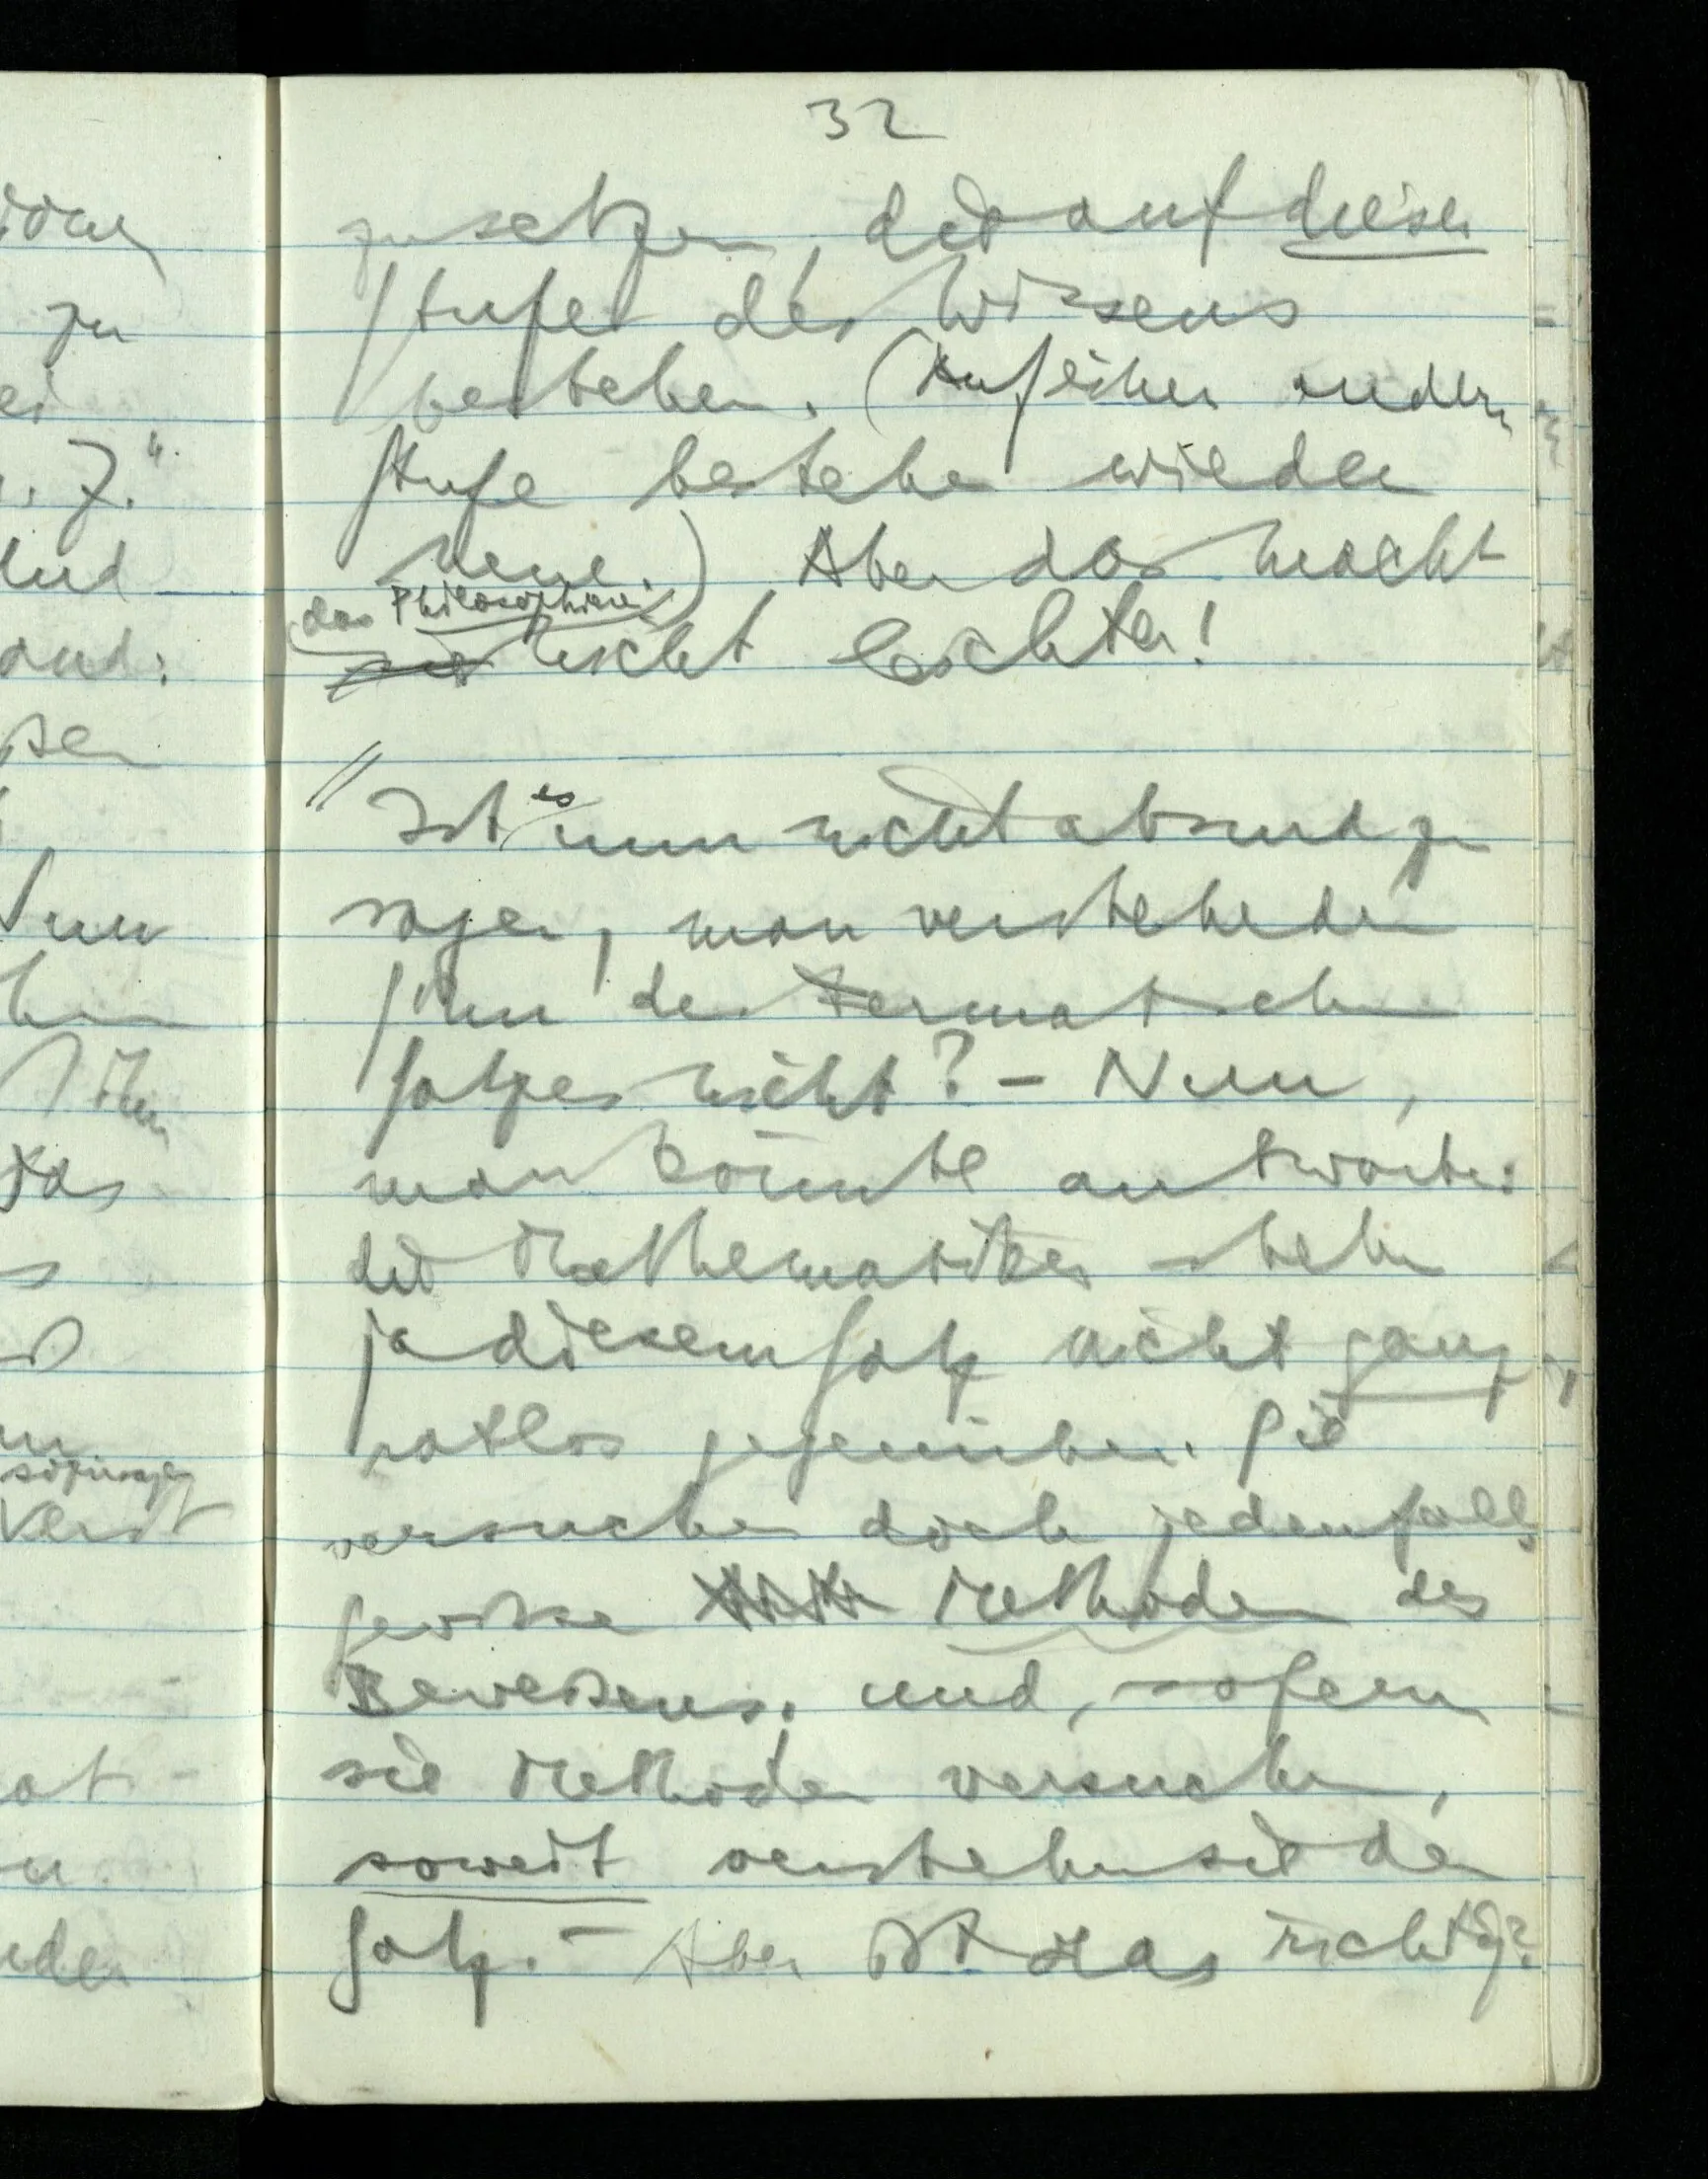 32
zusetzen, die auf dieser
Stufe des Wissens
bestehen. (Auf einer andern
Stufe bestehen wieder
neue.) Aber das macht
das Philosophieren
nicht leichter!
// Ist es nun nicht absurd zu
sagen, man verstehe den
Sinn des Fermatschen
Satzes nicht? – Nun,
man könnte antworten:
die Mathematiker stehen
ja diesem Satz nicht ganz
ratlos gegenüber. Sie
versuchen doch jedenfalls
gewisse Methoden des
Beweisens; und, sofern
sie Methoden versuchen,
soweit verstehen sie den
Satz. – Aber ist das richtig?
zu
ei
Nun
Das
sozusagen